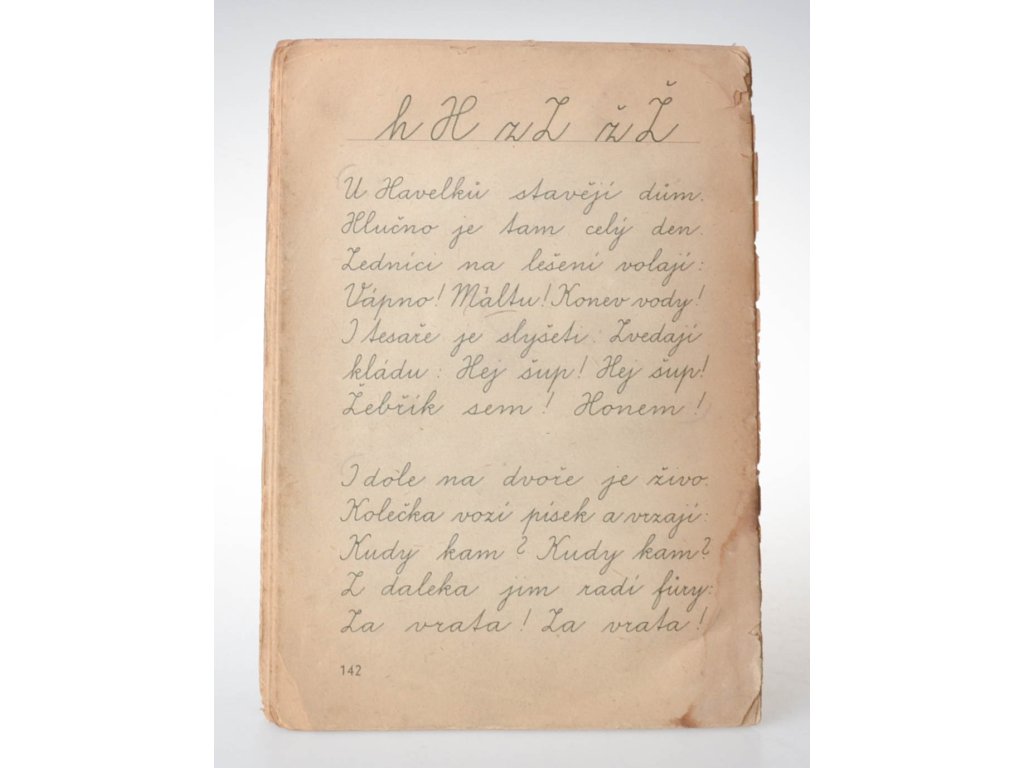 h H z Z ž Ž
U Havelků stavějí dům.
Hlučno je tam celý den.
Zedníci na lešení volají:
Vápno! Maltu! Konev vody!
I tesaře je slyšeti. Zvedají
kládu: Hej šup! Hej šup!
Žebřík sem! Honem!
I dole na dvoře je živo.
Kolečka vozí písek a vrzají:
Kudy kam? Kudy kam?
Z daleka jim radí fůry:
Za vrata! Za vrata!
142